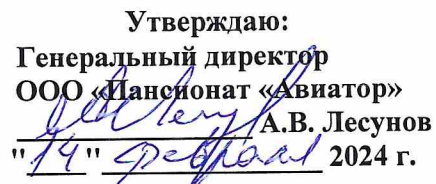 Утверждаю:
Генеральный директор
ООО «Пансионат «Авиатор»
А.В. Лесунов
"14" февраля 2024 г.